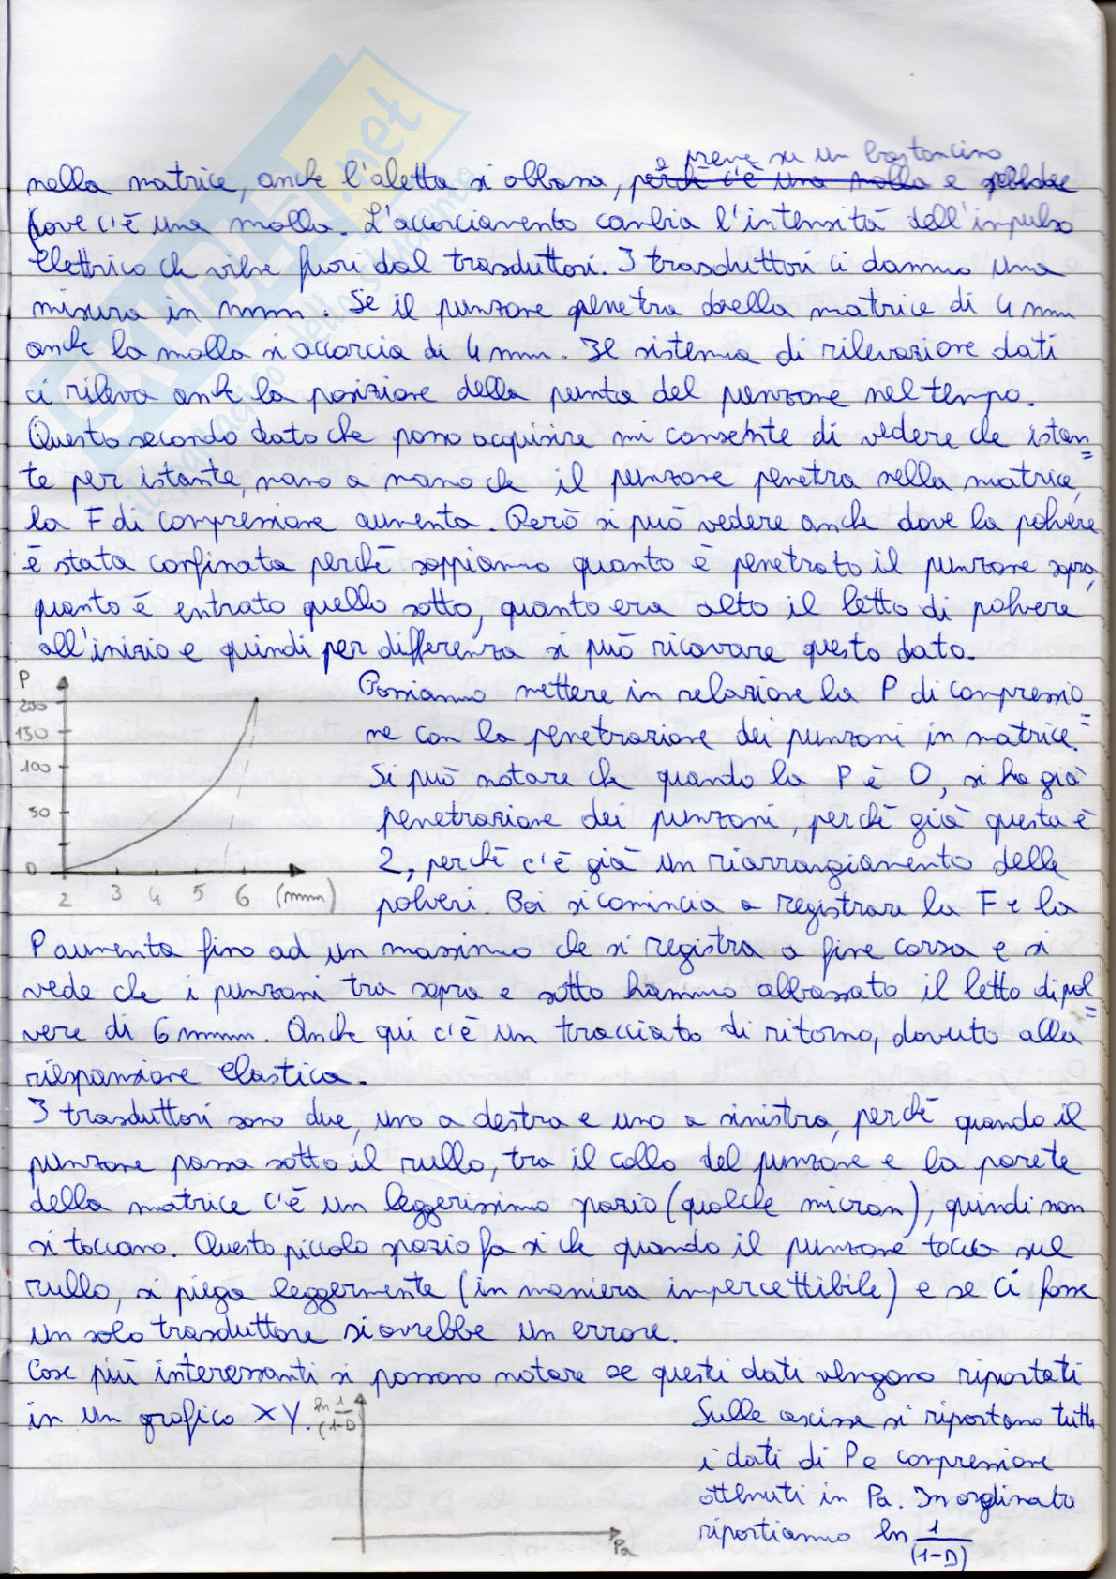 e preme su un bastoncino
nella matrice, anche l'aletta si abbassa, perché c'è una molla e
dove c'è una molla. L'accorciamento cambia l'intensità dell'impulso
elettrico che viene fuori dal trasduttori. I trasduttori ci danno una
misura in mm. Se il punzone penetra nella matrice di 4 mm
anche la molla si accorcia di 4 mm. Il sistema di rilevazione dati
ci rileva anche la posizione della punta del punzone nel tempo.
Questo secondo dato che posso acquisire mi consente di vedere che istan=
te per istante, mano a mano che il punzone penetra nella matrice,
la F di compressione aumenta. Però si può vedere anche dove la polvere
è stata confinata perché sappiamo quanto è penetrato il punzone sopra,
quanto è entrato quello sotto, quanto era alto il letto di polvere
all'inizio e quindi per differenza si può ricavare questo dato.
P
200
150
100
50
0
2 3 4 5 6 (mm)
Possiamo mettere in relazione la P di compressio=
ne con la penetrazione dei punzoni in matrice.
Si può notare che quando la P è 0, si ha già
penetrazione dei punzoni, perché già questa è
2, perché c'è già un riarrangiamento delle
polveri. Poi si comincia a registrare la F e la
P aumenta fino ad un massimo che si registra a fine corsa e si
vede che i punzoni tra sopra e sotto hanno abbassato il letto di pol=
vere di 6 mm. Anche qui c'è un tracciato di ritorno, dovuto alla
riespansione elastica.
I trasduttori sono due, uno a destra e uno a sinistra, perché quando il
punzone passa sotto il rullo, tra il collo del punzone e la parete
della matrice c'è un leggerissimo spazio (qualche micron), quindi non
si toccano. Questo piccolo spazio fa sì che quando il punzone tocca sul
rullo, si piega leggermente (in maniera impercettibile) e se ci fosse
un solo trasduttore si avrebbe un errore.
Cose più interessanti si possono notare se questi dati vengono riportati
in un grafico XY.
ln 1/(1-D
Pa
Sulle ascisse si riportano tutti
i dati di P e compressione
ottenuti in Pa. In ordinata
riportiamo ln 1/(1-D)